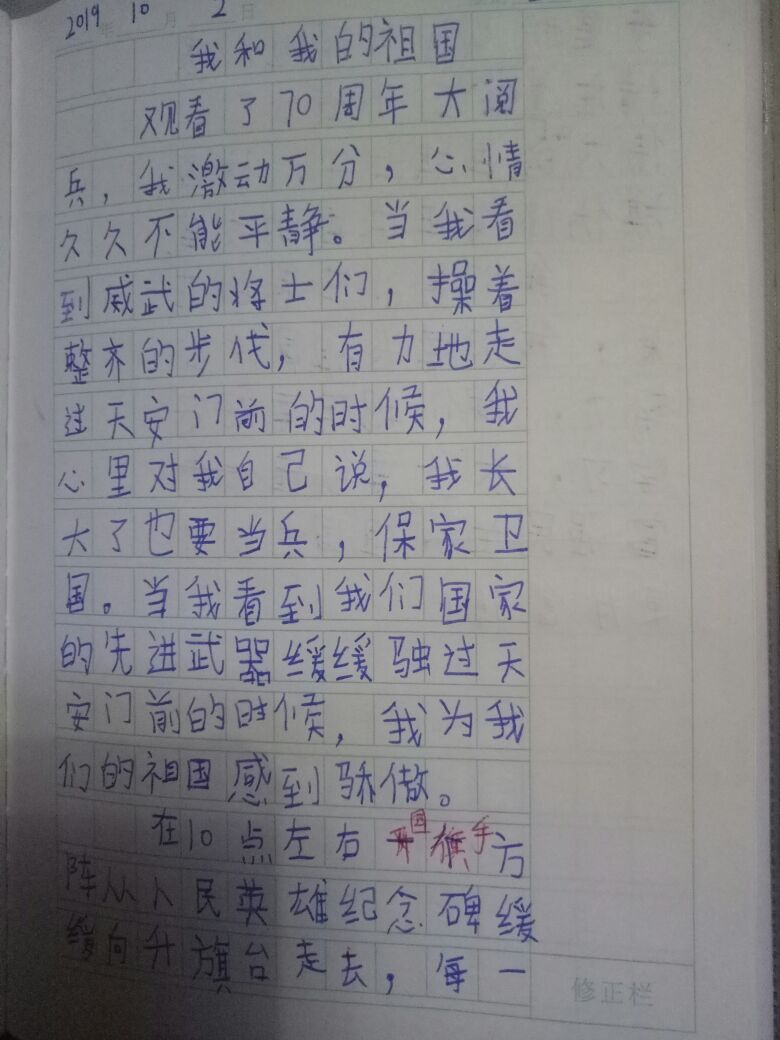 2019年10月2日
我和我的祖国
观看了70周年大阅
兵，我激动万分，心情
久久不能平静。当我看
到威武的将士们，操着
整齐的步伐，有力地走
过天安门前的时候，我
心里对我自己说，我长
大了也要当兵，保家卫
国。当我看到我们国家
的先进武器缓缓驶过天
安门前的时候，我为我
们的祖国感到骄傲。
在10点左右国旗手方
阵从人民英雄纪念碑缓
缓向升旗台走去，每一
修正栏